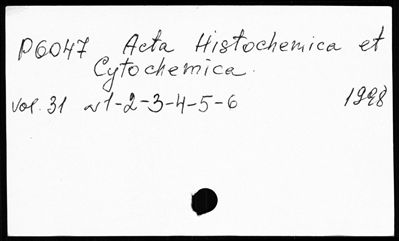 P6047 Acta Histochemica et
Cytochemica.
vol. 31 № 1-2-3-4-5-6 1998